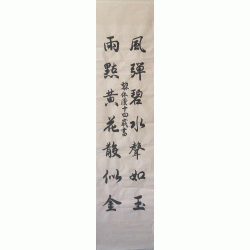 風彈碧水聲如玉
雨點黃花散似金